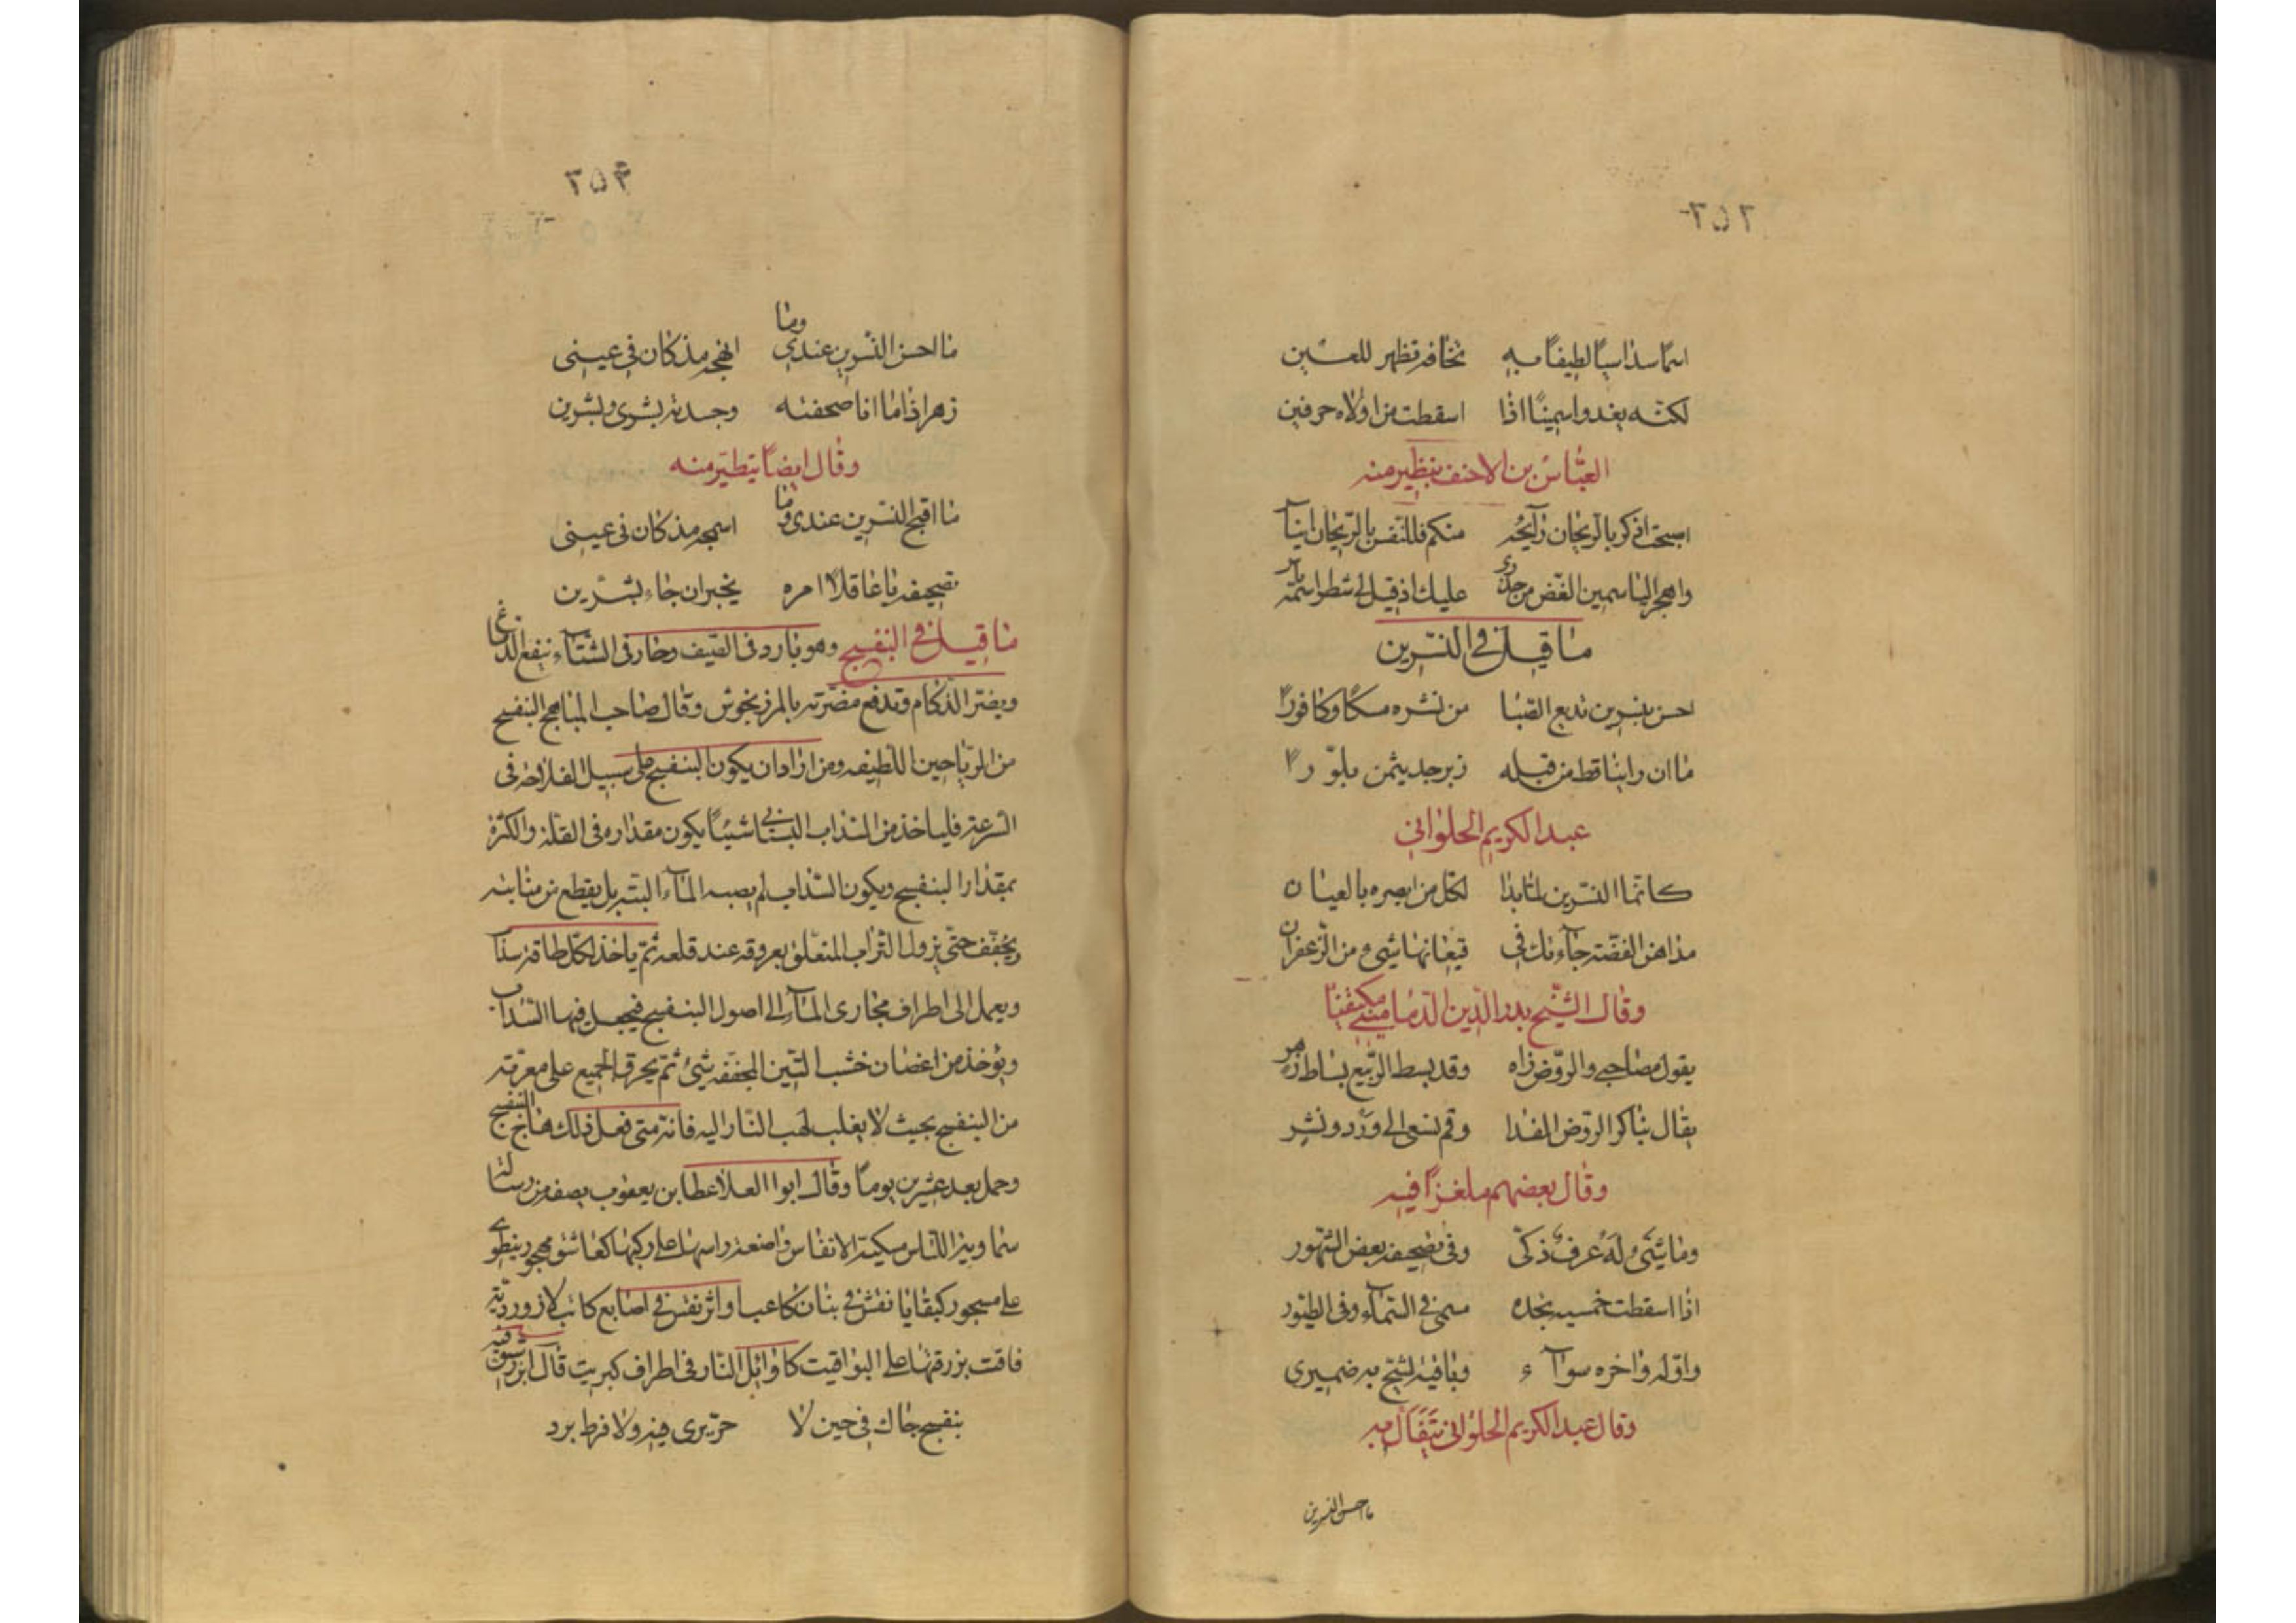 ٢٥٢
اسما سداسيا لطيفا به تخافه تظهر للعين
لكنه يغدوا سمينا اذا اسقطت من اولاه حرفين
العباس بن الاحنف يتطير منه
اصبحت اذكر بالريحان رائحة منكم فللنفس بالريحان ايناس
واهجر الياسمين الغض من حذري عليك اذ قيل لي شطر اسمه ياس
ما قيل في النسرين
احسن بنسرين تذيع الصبا من نشره مسكا وكافورا
ما ان راينا قط من قبله زبرجد يثمر بلورا
عبد الكريم الحلواني
كانما النسرين لما بدا لكل من ابصره بالعيان
مداهن الفضة جاءتك في قيعانها شيء من الزعفران
وقال الشيخ بدر الدين الدماميني مكتفيا
يقول مصاحبي والروض زاه وقد بسط الربيع بساط زهر
يقال نباكر الروض المفدا وقم نسعى الى ورد ونسر
وقال بعضهم ملغزا فيه
وما شيء له عرف ذكي وفي تصحيفه بعض الشهور
اذا اسقطت خمسيه تجده سمى في السماء وفي الطيور
واوله واخره سواء وباقيه لشح به ضميري
وقال عبد الكريم الحلواني يتفأل به
ما احسن النسرين
٢٥٣
ما احسن النسرين عندي وما ابهجه مذ كان في عيني
زهر اذا ما انا صحفته وجدته بشرى وبشرين
وقال ايضا يتطير منه
ما اقبح النسرين عندي وما اسمجه مذ كان في عيني
تصحيفه يا عاقلا امره يخبر ان جاء بشرين
ما قيل في البنفسج وهو بارد في الصيف وحار في الشتاء ينفع الدماغ
ويضر الزكام وتدفع مضرته بالمرزنجوش وقال صاحب المباهج البنفسج
من الرياحين اللطيفه ومن اراد ان يكون البنفسج على سبيل الفلاحة في
السرعة فلياخذ من السذاب البستاني شيئا يكون مقداره في القلة والكثرة
بمقدار البنفسج ويكون السذاب لم يصبه الماء البتة بل يقطع من منابته
ويجفف حتى يزول التراب المتعلق بعروقه عند قلعه ثم ياخذ لكل طاقة سذاب
ويعمل الى اطراف مجارى الماء الى اصول البنفسج فيجعل فيها السذاب
ويؤخذ من اغصان خشب التين المجففه شيء ثم يحرق الجميع على معرفة
من البنفسج بحيث لا يغلب لهب النار اليه فانه متى فعل ذلك هاج البنفسج
وحمل بعد عشرين يوما وقال ابوا العلا عطا بن يعقوب يصفه من رسالة
سماوية اللباس مسكية الانفاس واضعة راسها على ركبها كعاشق مهجور ينطوي
على مسجور كبقايا نقش في بنان كاعب او اثر نقس في اصابع كاتب لازوردية
فاقت بزرقتها على اليواقيت كاوائل النار في اطراف كبريت قال ابن رشيق فيه
بنفسج جاك في حين لا حر يرى فيه ولا فرط برد